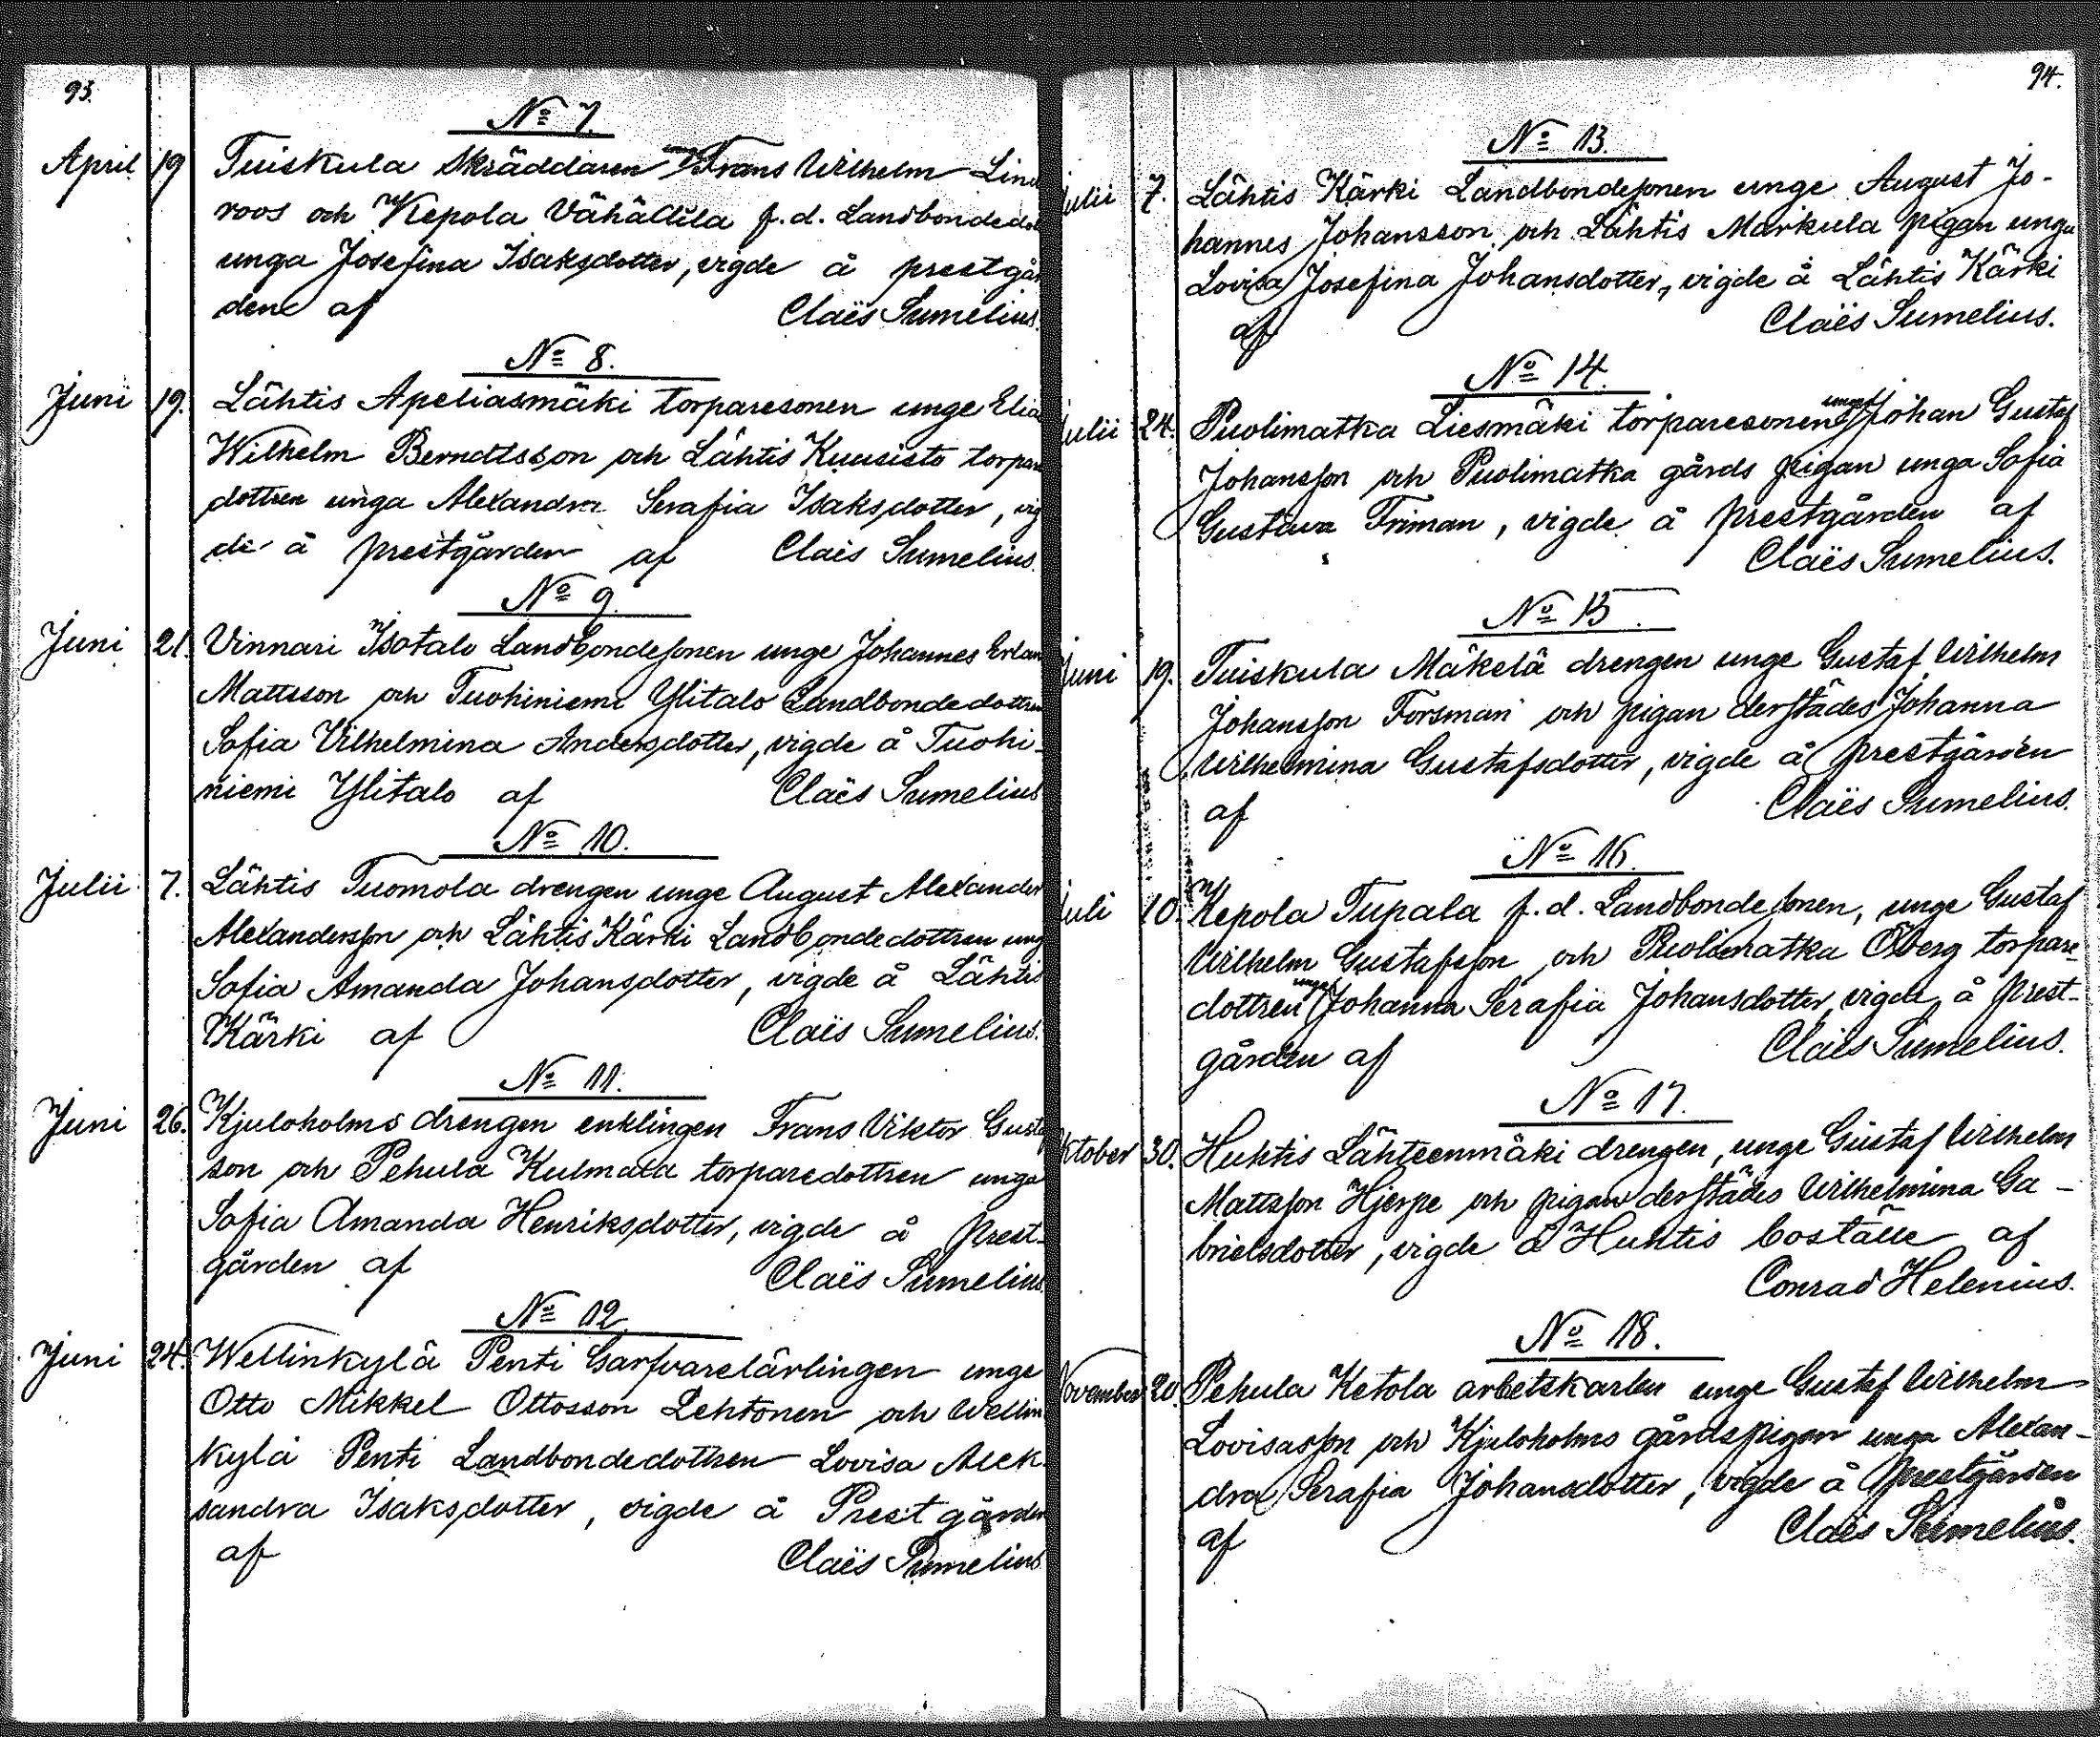 93.
No 7.
April 19 Tuiskula Skräddaren Frans Wilhelm Lind
roos och Kepola Vähällila f. d. Landbondedot
unga Josefina Isaksdotter, vigde å prestgår
den af Claës Sumelius.
No 8.
Juni 19. Lähtis Apeliasmäki torparesonen unge Elia
Wilhelm Berndtsson och Lähtis Kuusisto torpare
dottren unga Alexandra Serafia Isaksdotter, vig
de å prestgården af Claës Sumelius.
No 9.
Juni 21. Vinnari Isotalo Landbondesonen unge Johannes Erlan
Mattsson och Tuohiniemi Ylitalo Landbondedottren
Sofia Vilhelmina Andersdotter, vigde å Tuohi-
niemi Ylitalo af Claës Sumelius
No 10.
Julii 7. Lähtis Tuomola drengen unge August Alexander
Alexandersson och Lähtis Kärki Landbondedottren ung
Sofia Amanda Johansdotter, vigde å Lähtis
Kärki af Claës Sumelius.
No 11.
Juni 26. Kjuloholms drengen enklingen Frans Viktor Gustaf
son och Pehula Kulmala torparedottren unga
Sofia Amanda Henriksdotter, vigde å Prest-
gården af Claës Sumelius
No 12.
Juni 24. Wellinkylä Penti Garfvarelärlingen unge
Otto Mikkel Ottosson Lehtonen och Wellin
kylä Penti Landbondedottren Lovisa Alek
sandra Isaksdotter, vigde å Prestgården
af Claës Sumelius
94.
No 13.
Julii 7. Lähtis Kärki Landbondesonen unge August Jo-
hannes Johansson och Lähtis Markula pigan unga
Lovisa Josefina Johansdotter, vigde å Lähtis Kärki
af Claës Sumelius.
No 14.
Julii 24. Puolimatka Liesmäki torparesonen unge Johan Gustaf
Johansson och Puolimatka gårds pigan unga Sofia
Gustava Friman, vigde å prestgården af
Claës Sumelius.
No 15.
Juni 19. Tuiskula Mäkelä drengen unge Gustaf Wilhelm
Johansson Forsman och pigan derstädes Johanna
Wilhelmina Gustafsdotter, vigde å prestgården
af Claës Sumelius.
No 16.
Juli 10. Kepola Tupala f. d. Landbondesonen, unge Gustaf
Wilhelm Gustafsson och Puolimatka Öberg torpare-
dottren unga Johanna Serafia Johansdotter, vigde å Prest-
gården af Claës Sumelius.
No 17.
Oktober 30. Huhtis Lähteenmäki drengen, unge Gustaf Wilhelm
Mattsson Hjerpe och pigan derstädes Wilhelmina Ga-
brielsdotter, vigde å Huhtis boställe af
Conrad Helenius.
No 18.
November 20. Pehula Ketola arbetskarlen unge Gustaf Wilhelm
Lovisasson och Kjuloholms gårdspigan unga Alexan-
dra Serafia Johansdotter, vigde å Prestgården
af Claës Sumelius.